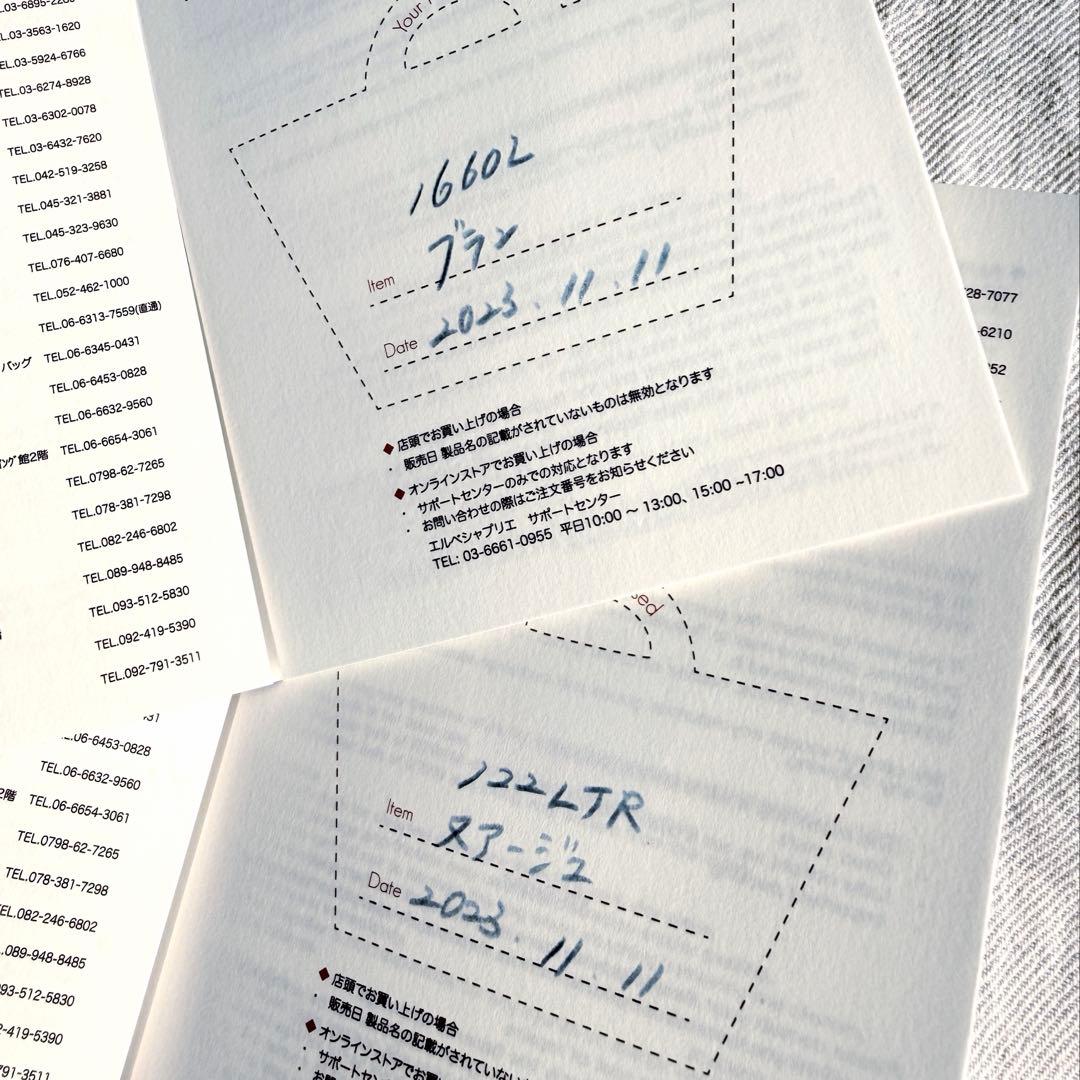 TEL.03-3563-1620
TEL.03-5924-6766
TEL.03-6274-8928
TEL.03-6302-0078
TEL.03-6432-7620
TEL.042-519-3258
TEL.045-321-3881
TEL.045-323-9630
TEL.076-407-6680
TEL.052-462-1000
TEL.06-6313-7559(直通)
バッグ TEL.06-6345-0431
TEL.06-6453-0828
TEL.06-6632-9560
館2階 TEL.06-6654-3061
TEL.0798-62-7265
TEL.078-381-7298
TEL.082-246-6802
TEL.089-948-8485
TEL.093-512-5830
TEL.092-419-5390
TEL.092-791-3511
Your
16602
Item ブラン
Date 2023.11.11
◆店頭でお買い上げの場合
・ 販売日 製品名の記載がされていないものは無効となります
◆オンラインストアでお買い上げの場合
・ サポートセンターのみでの対応となります
・ お問い合わせの際はご注文番号をお知らせください
エルベシャプリエ サポートセンター
TEL: 03-6661-0955 平日10:00 ~ 13:00、15:00 ~17:00
28-7077
-6210
52
06-6453-0828
TEL.06-6632-9560
2階 TEL.06-6654-3061
TEL.0798-62-7265
TEL.078-381-7298
TEL.082-246-6802
.089-948-8485
93-512-5830
2-419-5390
791-3511
ed
122LTR
Item ヌアージュ
Date 2023.11.11
◆店頭でお買い上げの場合
・ 販売日 製品名の記載がされていない
◆オンラインストアでお買い
・ サポートセン